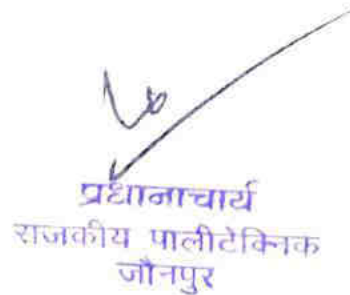 प्रधानाचार्य
राजकीय पालीटेक्निक
जौनपुर